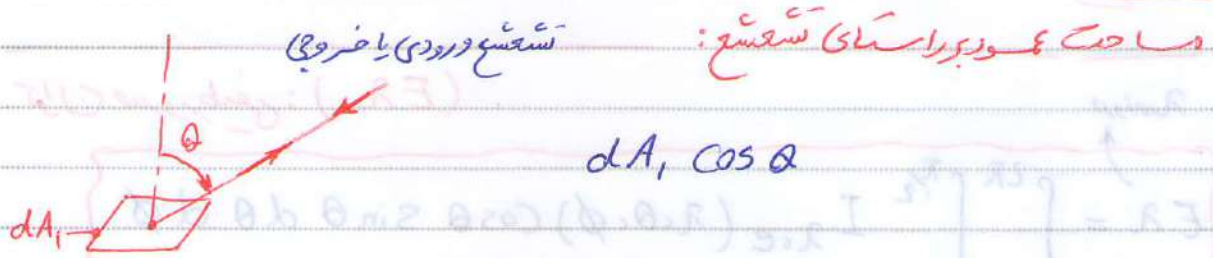 مساحت عمود بر راستای تشعشع:
تشعشع ورودی یا خروجی
θ
dA₁ cos θ
dA₁